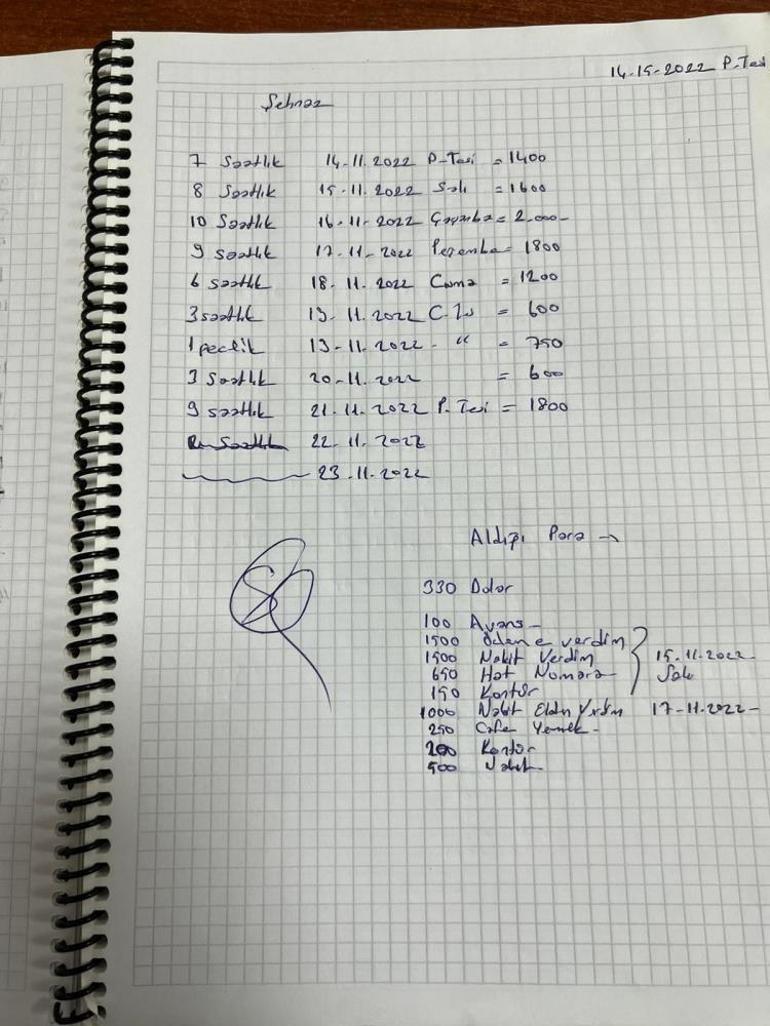 14-15-2022 P-Tesi
Şehnaz
7 Saatlık 14-11.2022 P-Tesi = 1400
8 Saatlık 15-11.2022 Salı = 1600
10 Saatlık 16-11-2022 Çarşmba = 2.000-
9 saatlık 17-11-2022 Perşembe = 1800
6 saatlık 18.11.2022 Cuma = 1200
3 saatlık 19.11.2022 = 600
1 peclik 19-11-2022 - " = 750
3 Saatlık 20-11-2022 = 600
9 saatlık 21.11.2022 P.Tesi = 1800
22.11.2022
23.11.2022
Aldıgı Para →
330 Dolar
100 Avans-
1500 verdim
1500 Nakit Verdim 15.11.2022
650 Hat Numara Salı
150 Kontör
1000 Nakit Eldn Vrdm 17-11-2022-
250 Cafe Yemek-
200 Kontör
500 Nakit